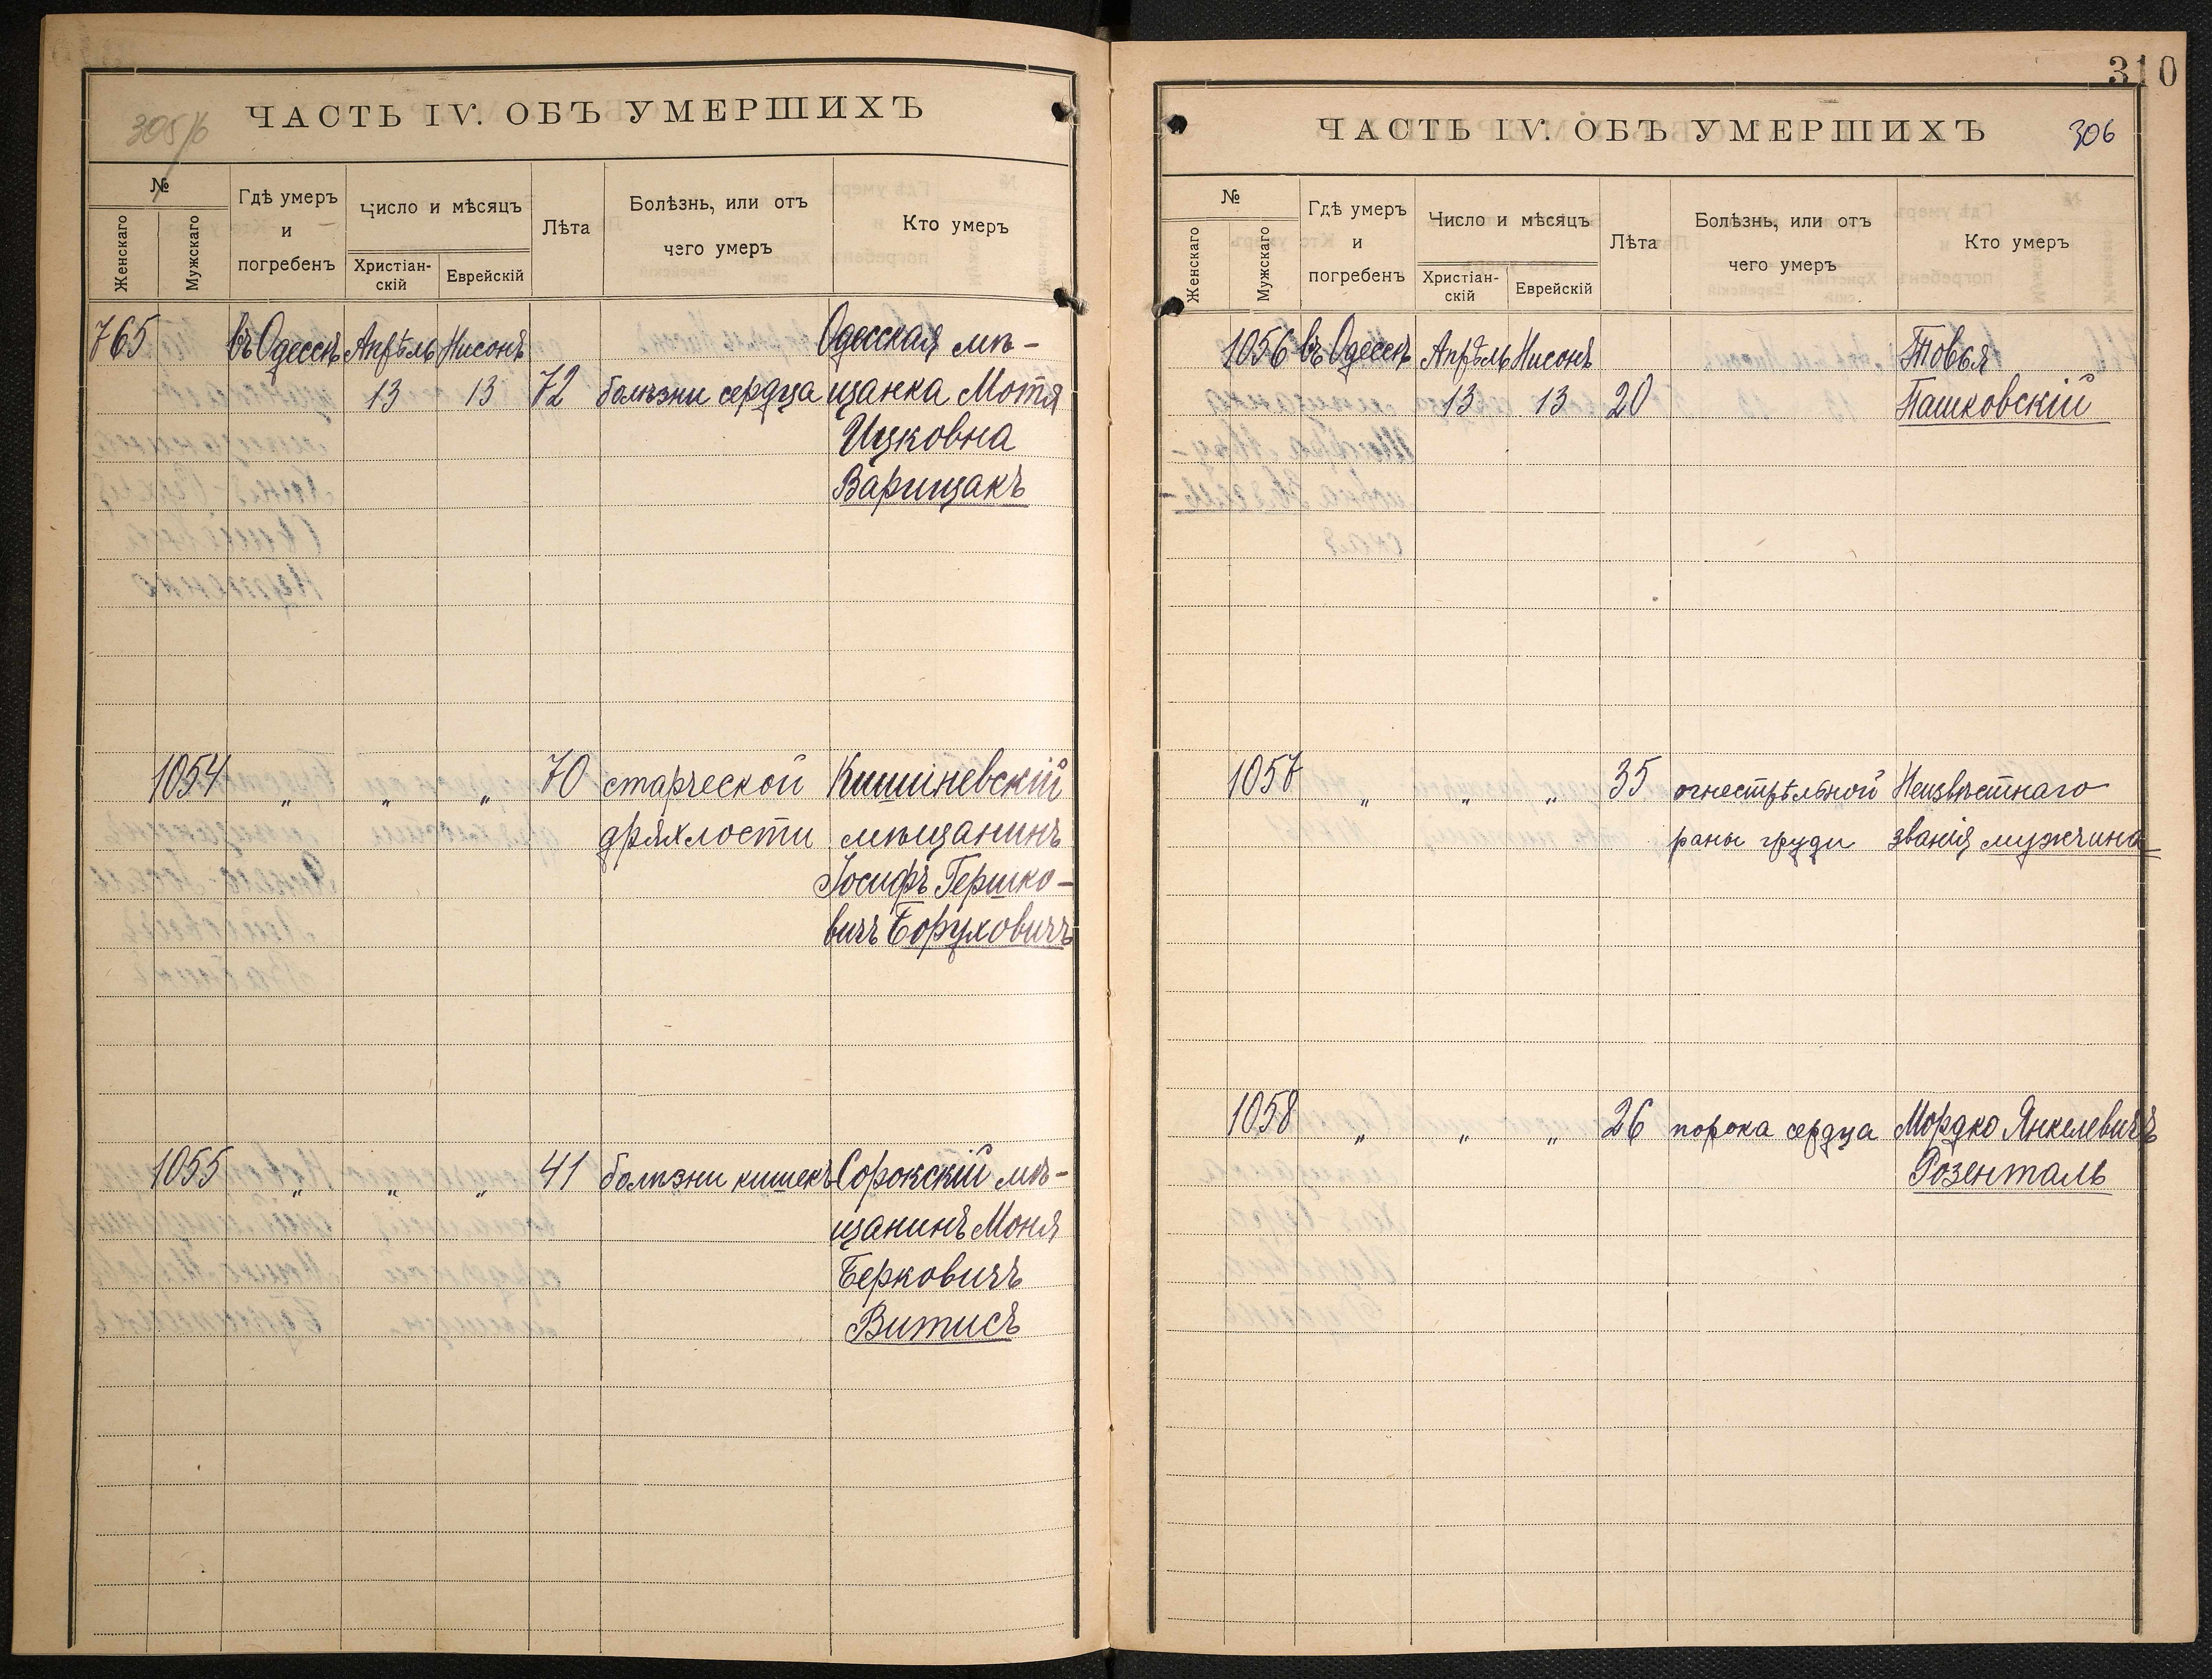 ЧАСТЬ IV. ОБЪ УМЕРШИХЪ
305/6
№
Женскаго
Мужскаго
Гдѣ умеръ
и
погребенъ
Число и мѣсяцъ
Христіан-
скій
Еврейскій
Лѣта
Болѣзнь, или отъ
чего умеръ
Кто умеръ
765 въ Одессѣ Апрѣль Нисонъ Одесская мѣ-
13 13 72 болѣзни сердца щанка Мотя
Ицковна
Варищакъ
1054 „ „ „ 70 старческой Кишиневскій
дряхлости мѣщанинъ
Іосифъ Гершко-
вичъ Боруховичъ
1055 „ „ „ 41 болѣзни кишекъ Сорокскій мѣ-
щанинъ Моня
Берковичъ
Витисъ
310
ЧАСТЬ IV. ОБЪ УМЕРШИХЪ
306
№
Женскаго
Мужскаго
Гдѣ умеръ
и
погребенъ
Число и мѣсяцъ
Христіан-
скій
Еврейскій
Лѣта
Болѣзнь, или отъ
чего умеръ
Кто умеръ
1056 въ Одессѣ Апрѣль Нисонъ Товья
13 13 20 Пашковскій
1057 „ „ „ 35 огнестрѣльной Неизвѣстнаго
раны груди званія мужчина
1058 „ „ „ 26 порока сердца Мордко Янкелевичъ
Розенталь